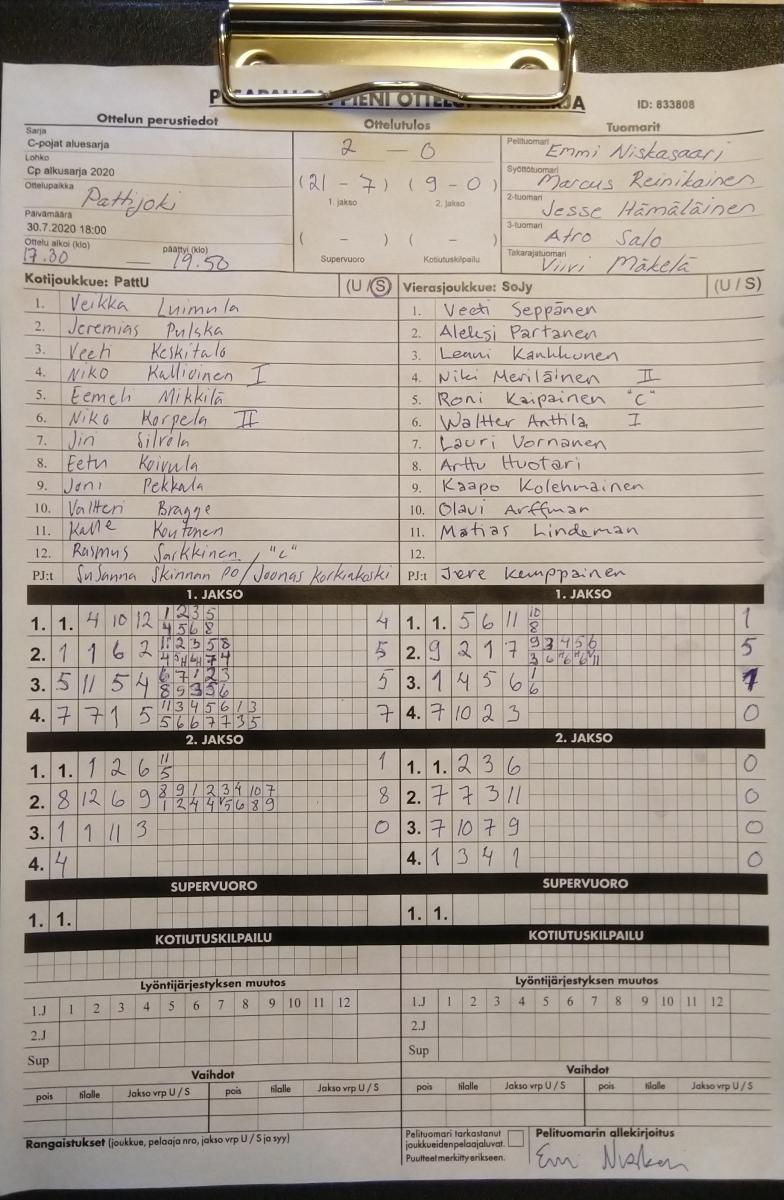 PIENI OTTELU
ID: 833808
Ottelun perustiedot
Ottelutulos
Tuomarit
Sarja
C-pojat aluesarja
Lohko
Cp alkusarja 2020
Ottelupaikka
Pattijoki
Päivämäärä
30.7.2020 18:00
Ottelu alkoi (klo) päättyi (klo)
17.30 — 19.50
2 — 0
(21 - 7) (9 - 0)
1. jakso 2. jakso
( - ) ( - )
Supervuoro Kotiutuskilpailu
Pelituomari
Emmi Niskasaari
Syöttötuomari
Marcus Reinikainen
2-tuomari
Jesse Hämäläinen
3-tuomari
Atro Salo
Takarajatuomari
Viivi Mäkelä
Kotijoukkue: PattU (U / S)
1. Veikka Luimula
2. Jeremias Pulska
3. Veeti Keskitalo
4. Niko Kallioinen I
5. Eemeli Mikkilä
6. Niko Korpela II
7. Jiri Silvola
8. Eetu Koivula
9. Joni Pekkala
10. Valtteri Bragge
11. Kalle Koutonen
12. Rasmus Sarkkinen, "c"
PJ:t Susanna Skinnari PO / Joonas Korkiakoski
Vierasjoukkue: SoJy (U / S)
1. Veeti Seppänen
2. Aleksi Partanen
3. Lenni Kankkunen
4. Niki Meriläinen II
5. Roni Kaipainen "C"
6. Waltter Anttila I
7. Lauri Vornanen
8. Arttu Huotari
9. Kaapo Kolehmainen
10. Olavi Arffman
11. Matias Lindeman
12.
PJ:t Jere Kemppainen
1. JAKSO
1. 1. 4 10 12 1 2 3 5 4
4 5 6 8
2. 1 1 6 2 11 2 3 5 8 5
3. 5 11 5 4 6 7 1 2 3 5
8 9 3 5 6
4. 7 7 1 5 11 3 4 5 6 1 3 7
5 6 6 7 7 3 5
1. JAKSO
1. 1. 5 6 11 10 1
8
2. 9 2 1 7 9 3 4 5 6 5
3. 1 4 5 6 1 1
6
4. 7 10 2 3 0
2. JAKSO
1. 1. 1 2 6 11 1
5
2. 8 12 6 9 8 9 1 2 3 4 10 7 8
1 2 4 4 5 6 8 9
3. 1 1 11 3 0
4. 4
2. JAKSO
1. 1. 2 3 6 0
2. 7 7 3 11 0
3. 7 10 7 9 0
4. 1 3 4 1 0
SUPERVUORO
1. 1.
SUPERVUORO
1. 1.
KOTIUTUSKILPAILU
KOTIUTUSKILPAILU
Lyöntijärjestyksen muutos
1.J 1 2 3 4 5 6 7 8 9 10 11 12
2.J
Sup
Lyöntijärjestyksen muutos
1.J 1 2 3 4 5 6 7 8 9 10 11 12
2.J
Sup
Vaihdot
pois tilalle Jakso vrp U / S pois tilalle Jakso vrp U / S
Vaihdot
pois tilalle Jakso vrp U / S pois tilalle Jakso vrp U / S
Rangaistukset (joukkue, pelaaja nro, jakso vrp U / S ja syy)
Pelituomari tarkastanut
joukkueidenpelaajaluvat.
Puutteet merkitty erikseen.
Pelituomarin allekirjoitus